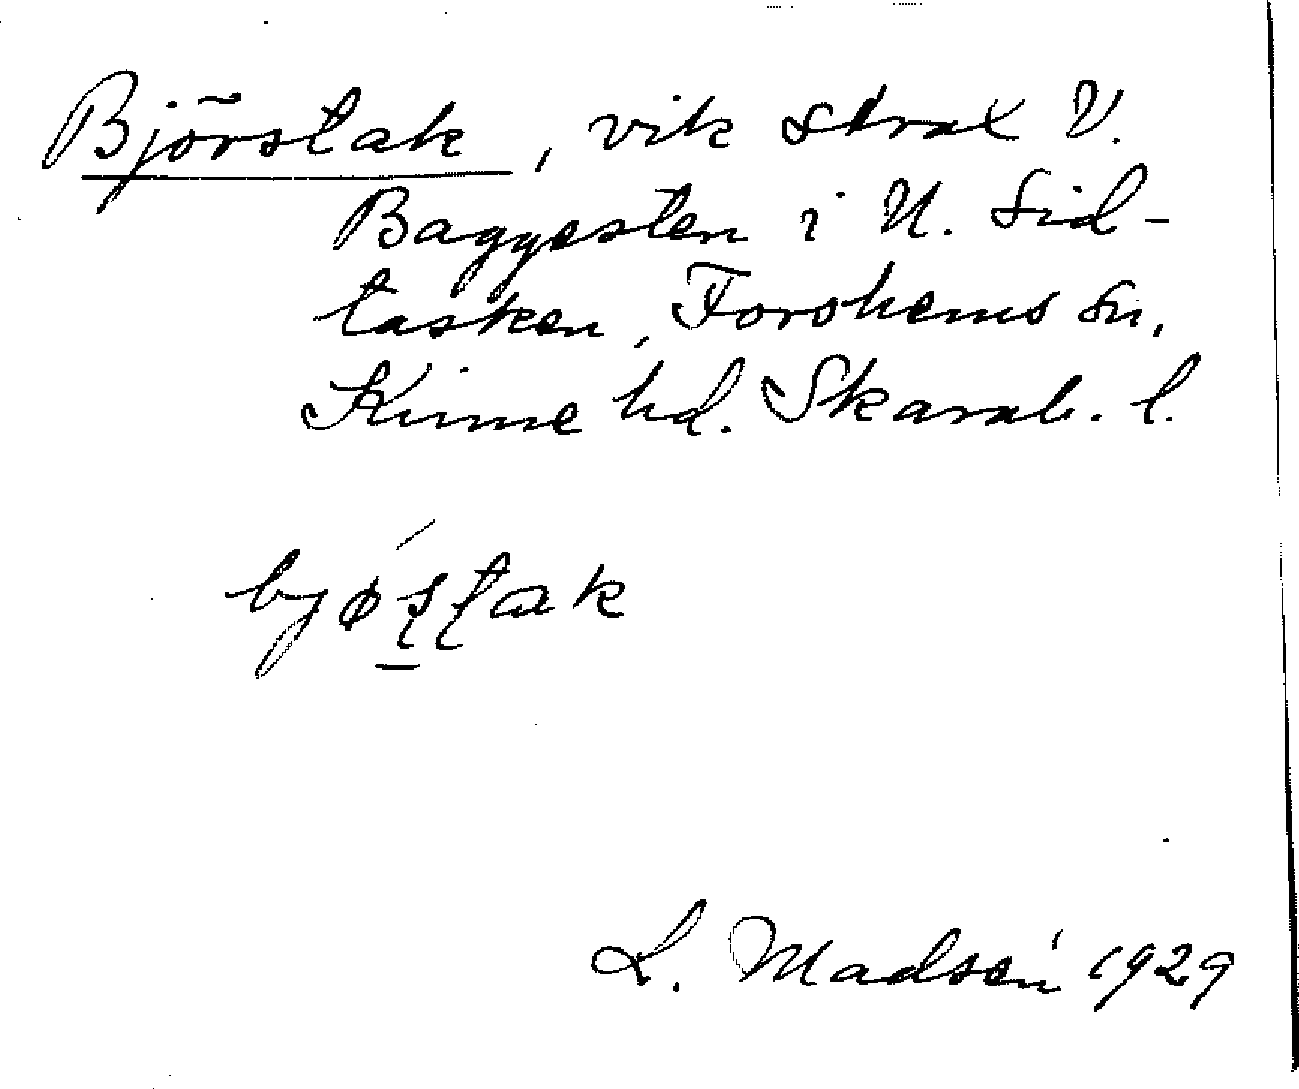 Björstak, vik strax V.
Baggesten i N. Sid-
tasken, Forshems sn,
Kinne hd. Skarab. l.
bjøʂʈak
L. Madsén 1929